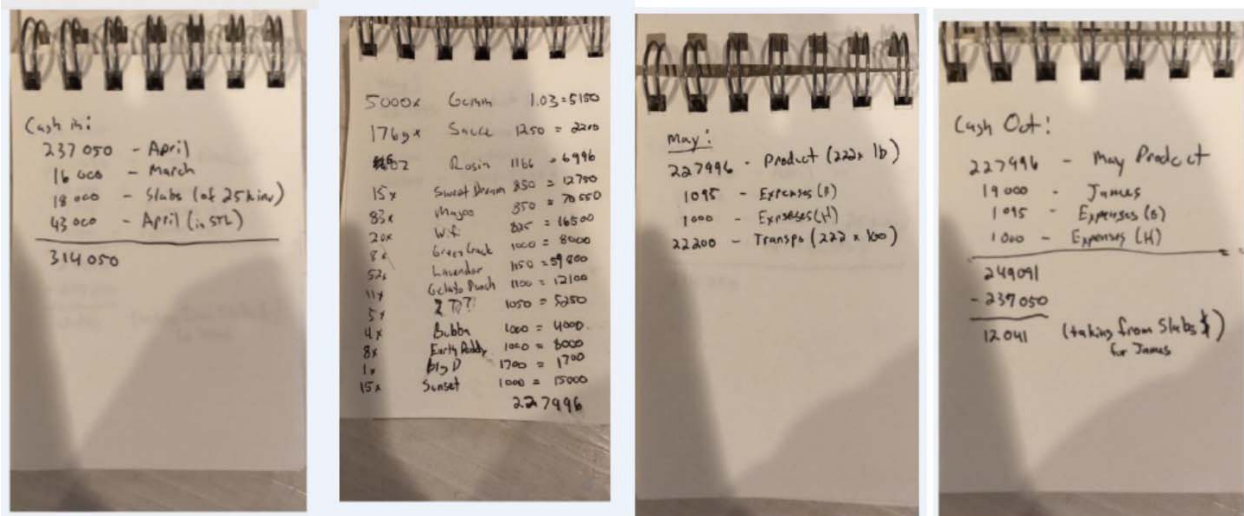 Cash in:
237 050 - April
16 000 - March
18 000 - Slabs (of 25k inv)
43 000 - April (in STL)
314 050
5000x Gumm 1.03 = 5150
176g x Sauce 1250 = 2200
6oz Rosin 1166 = 6996
15x Sweet Dream 850 = 12750
83x Mayoo 850 = 70550
20x Wifi 825 = 16500
8x Green Crack 1000 = 8000
52x Lavender 1150 = 59800
11x Gelato Punch 1100 = 12100
5x ??? 1050 = 5250
4x Bubba 1000 = 4000
8x Earth Daddy 1000 = 8000
1x Big D 1700 = 1700
15x Sunset 1000 = 15000
227996
May:
227996 - Product (222x lb)
1095 - Expenses (B)
1000 - Expenses (H)
22200 - Transpo (222 x 100)
Cash Out:
227996 - May Product
19 000 - James
1 095 - Expenses (B)
1 000 - Expenses (H)
249091
- 237050
12 041 (taking from Slabs $)
for James